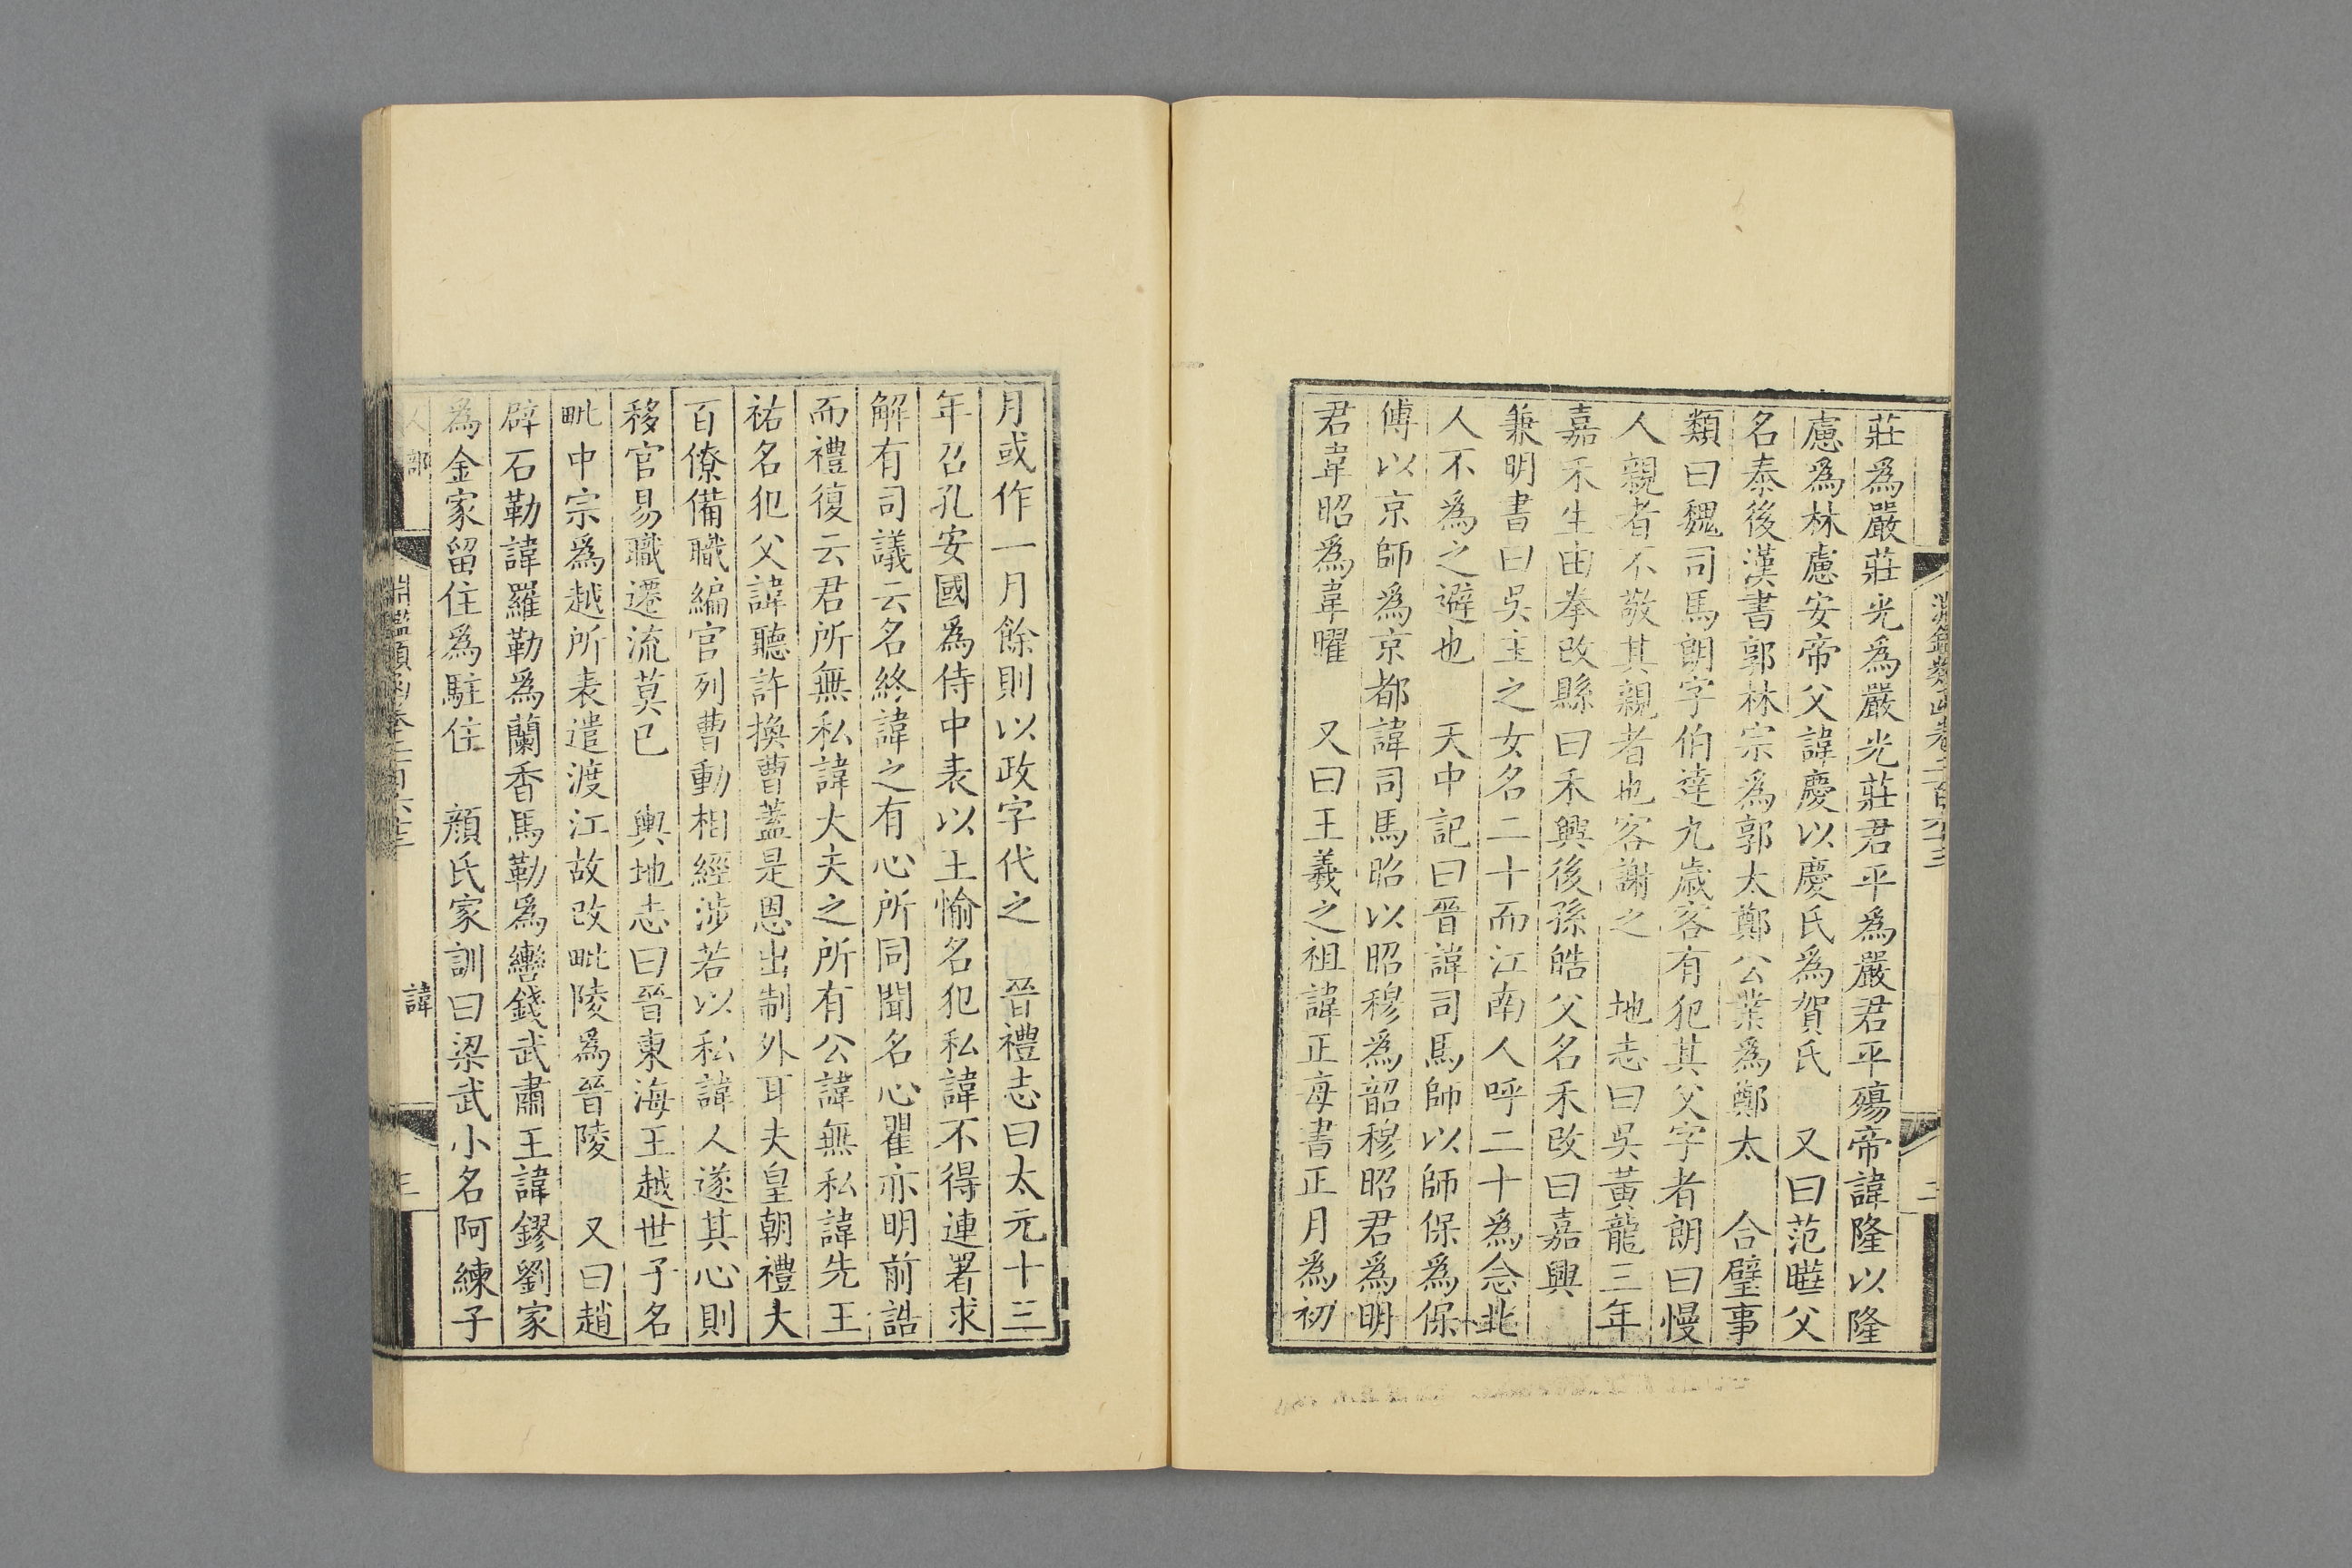 莊爲嚴莊光爲嚴光莊君平爲嚴君平殤帝諱隆以隆
慮爲林慮安帝父諱慶以慶氏爲賀氏　又曰范曄父
名泰後漢書郭林宗爲郭太鄭公業爲鄭太　合璧事
類曰魏司馬朗字伯達九歲客有犯其父字者朗曰慢
人親者不敬其親者也客謝之　地志曰吳黃龍三年
嘉禾生由拳改縣曰禾興後孫皓父名禾改曰嘉興
兼明書曰吳主之女名二十而江南人呼二十爲念北
人不爲之避也　天中記曰晉諱司馬師以師保爲保
傅以京師爲京都諱司馬昭以昭穆爲韶穆昭君爲明
君韋昭爲韋曜　又曰王羲之祖諱正每書正月爲初
月或作一月餘則以政字代之　晉禮志曰太元十三
年召孔安國爲侍中表以王愉名犯私諱不得連署求
解有司議云名終諱之有心所同聞名心瞿亦明前誥
而禮復云君所無私諱大夫之所有公諱無私諱先王
祐名犯父諱聽許換曹蓋是恩出制外耳夫皇朝禮大
百僚備職編官列曹動相經涉若以私諱人遂其心則
移官易職遷流莫已　輿地志曰晉東海王越世子名
毗中宗爲越所表遣渡江故改毗陵爲晉陵　又曰趙
辟石勒諱羅勒爲蘭香馬勒爲轡錢武肅王諱鏐劉家
爲金家留住爲駐住　顏氏家訓曰梁武小名阿練子
人部
淵鑑類函卷二百六十三
諱
三